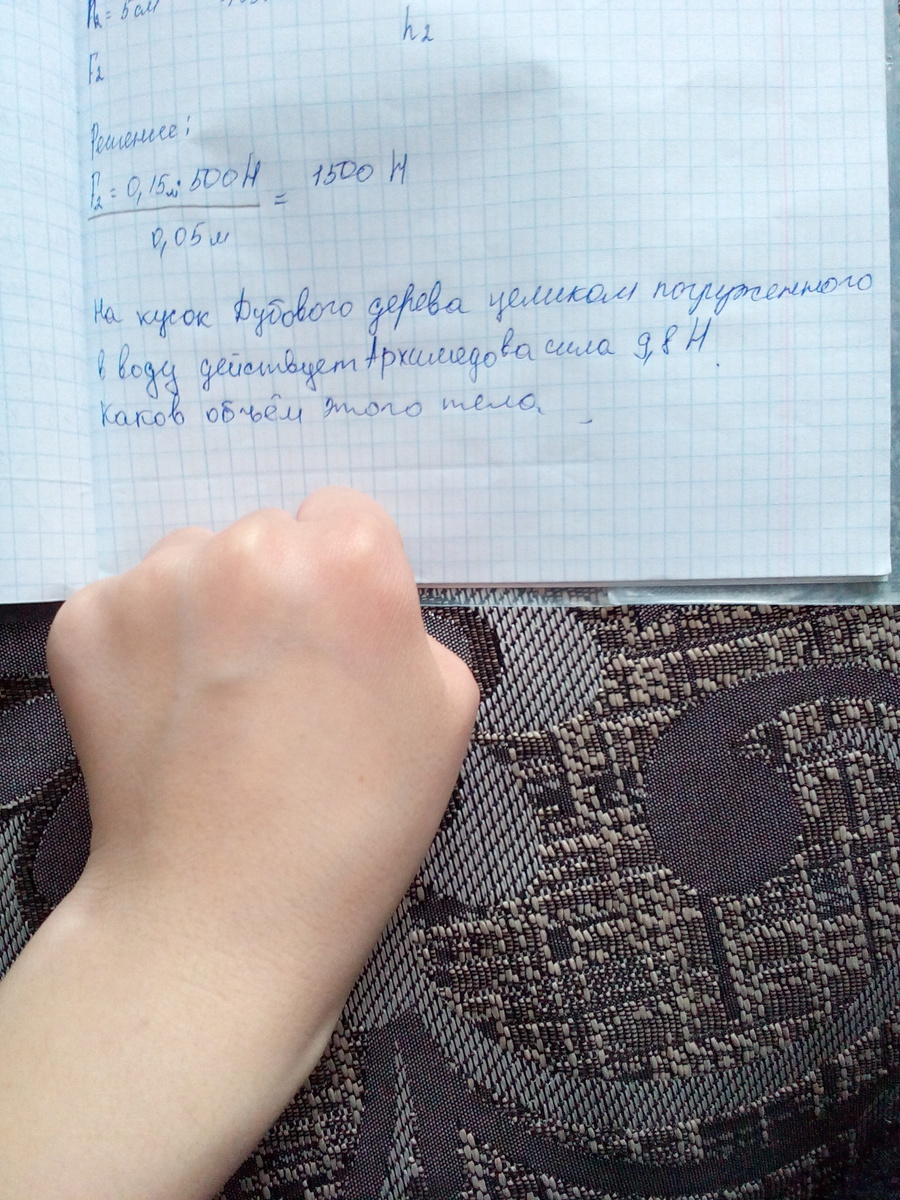 h₂ = 5 см
h₂
F₂
Решение:
F₂ = 0,15м · 500 Н = 1500 Н
0,05 м
На кусок Дубового дерева целиком погруженного
в воду действует Архимедова сила 9,8 Н.
Каков объём этого тела.